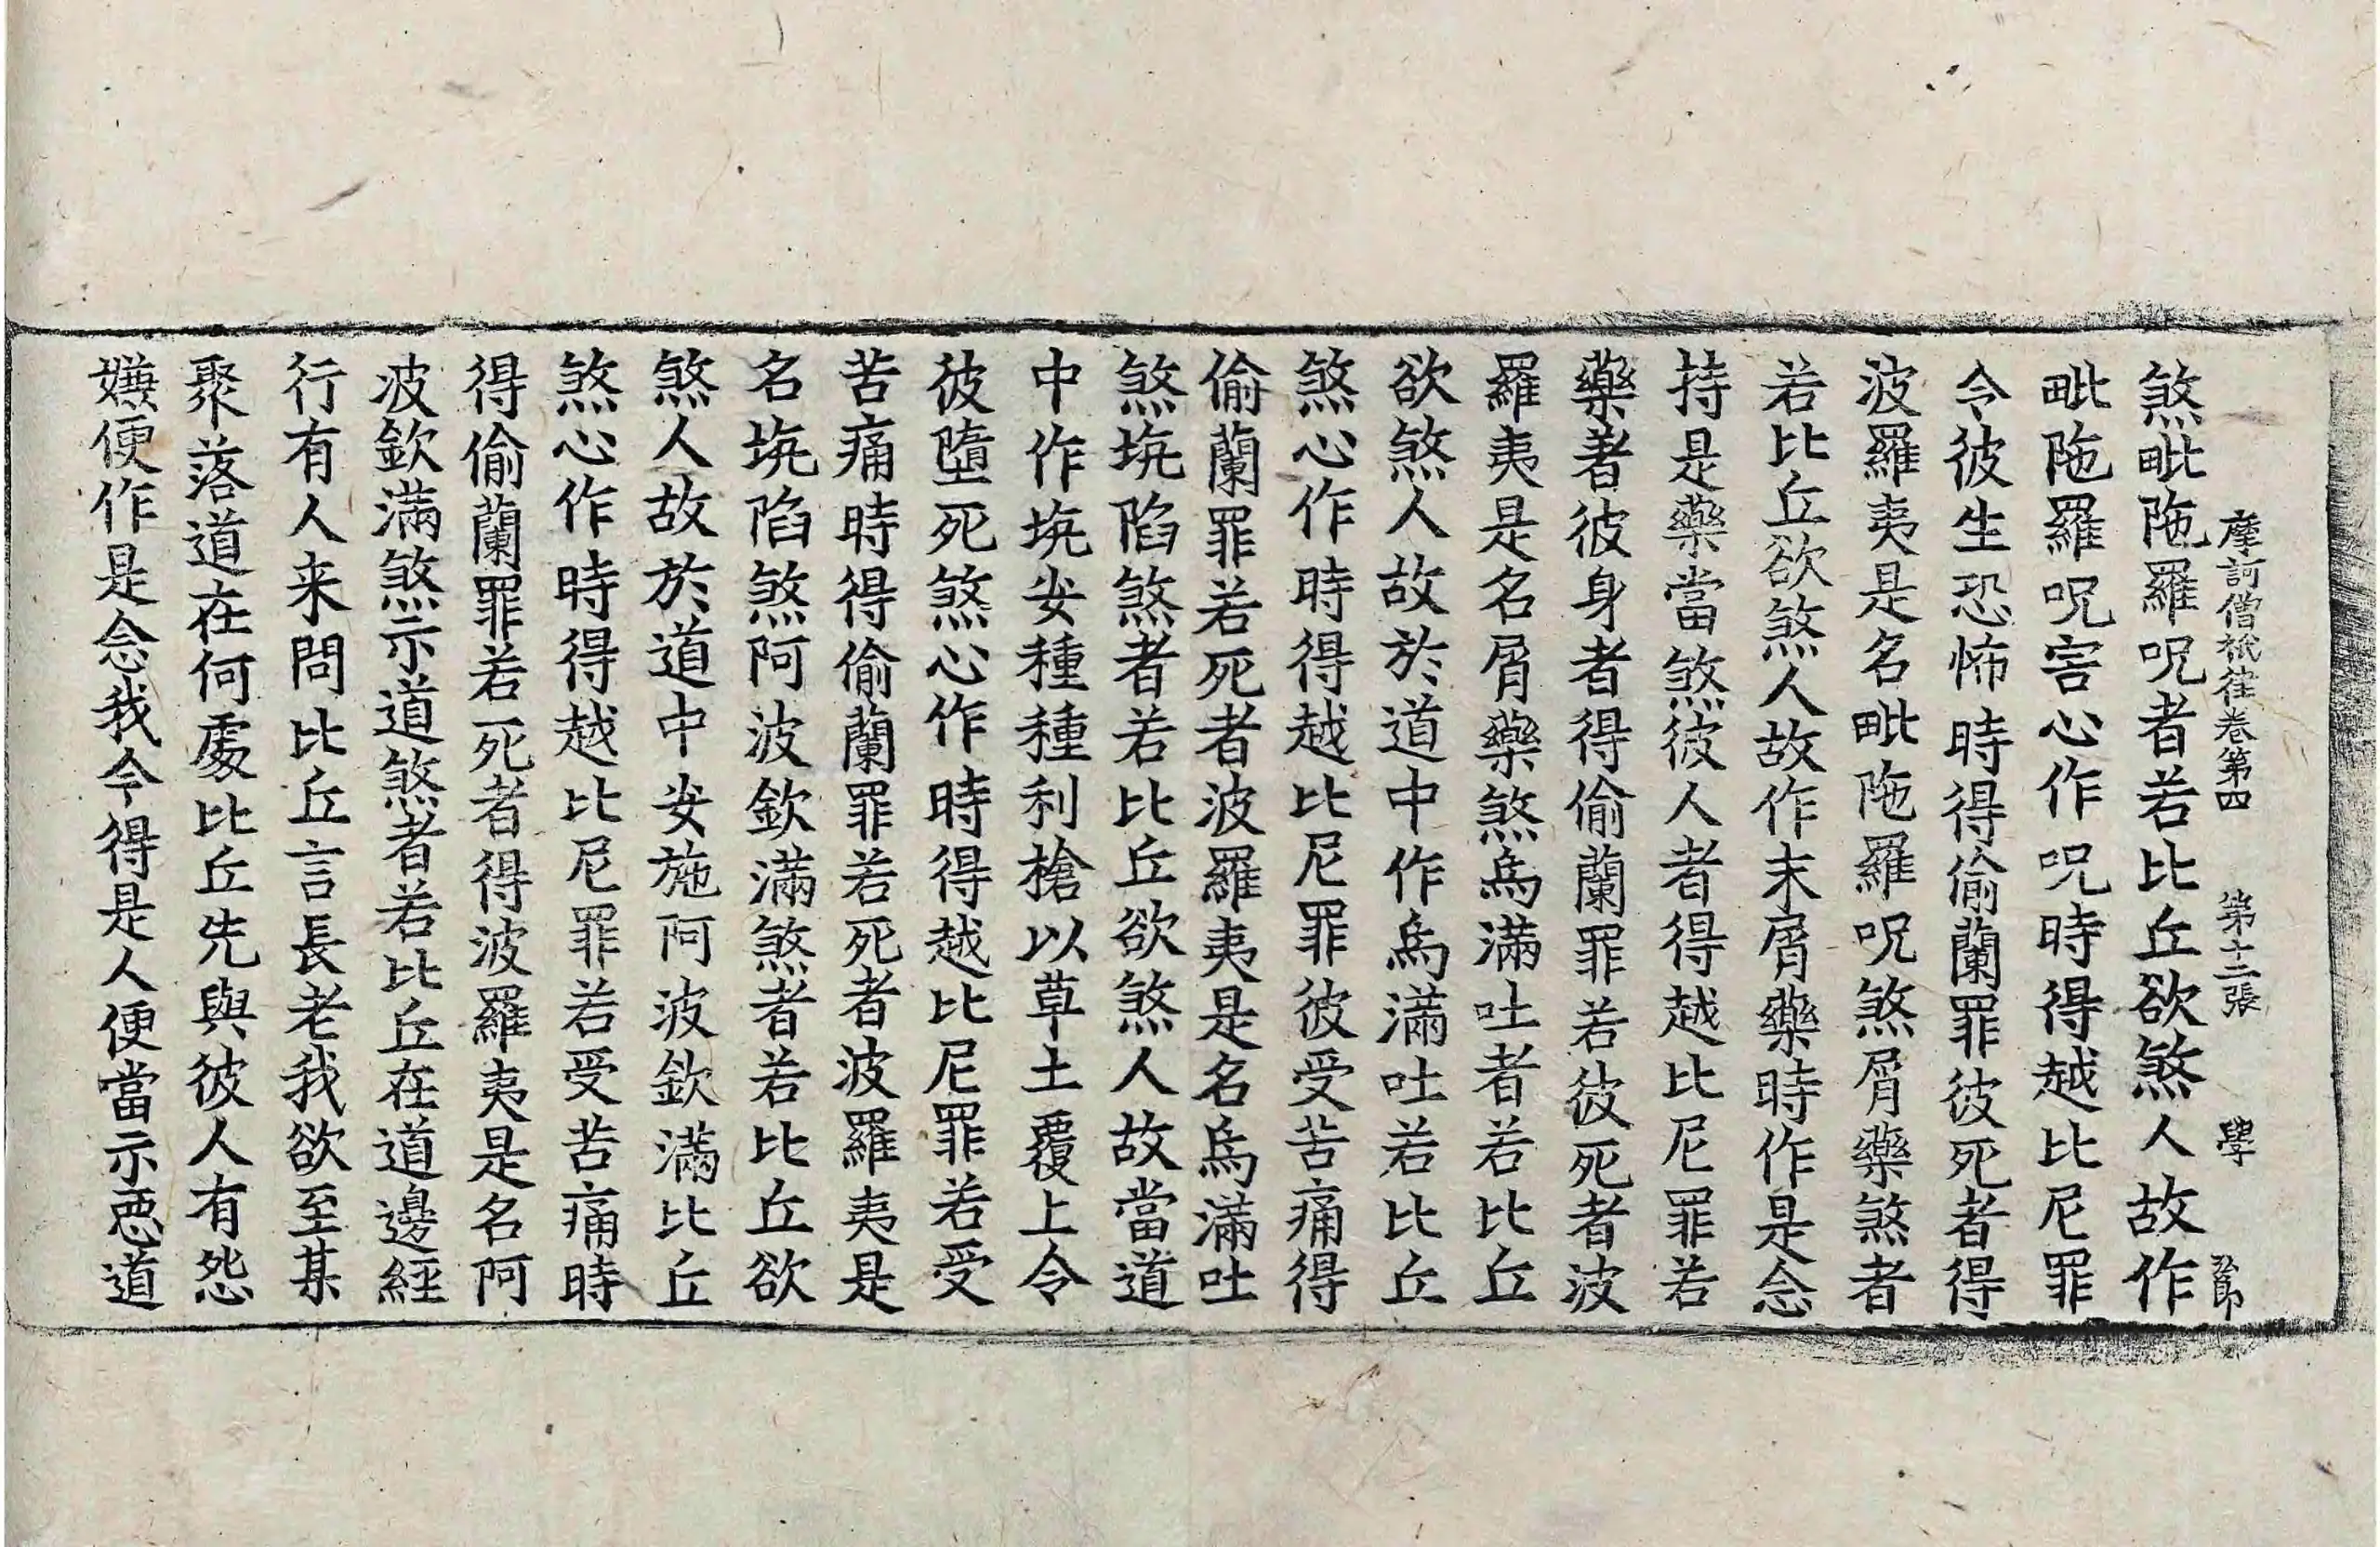 摩訶僧祇律卷第四 第十二張 學
煞毗陁羅呪者若比丘欲煞人故作
毗陁羅呪害心作呪時得越比尼罪
令彼生恐怖時得偷蘭罪彼死者得
波羅夷是名毗陁羅呪煞屑藥煞者
若比丘欲煞人故作末屑藥時作是念
持是藥當煞彼人者得越比尼罪若
藥著彼身者得偷蘭罪若彼死者波
羅夷是名屑藥煞烏滿吐者若比丘
欲煞人故於道中作烏滿吐若比丘
煞心作時得越比尼罪彼受苦痛得
偷蘭罪若死者波羅夷是名烏滿吐
煞坑陷煞者若比丘欲煞人故當道
中作坑安種種利槍以草土覆上令
彼墮死煞心作時得越比尼罪若受
苦痛時得偷蘭罪若死者波羅夷是
名坑陷煞阿波欽滿煞者若比丘欲
煞人故於道中安施阿波欽滿比丘
煞心作時得越比尼罪若受苦痛時
得偷蘭罪若死者得波羅夷是名阿
波欽滿煞示道煞者若比丘在道邊經
行有人来問比丘言長老我欲至某
聚落道在何處比丘先與彼人有怨
嫌便作是念我今得是人便當示惡道